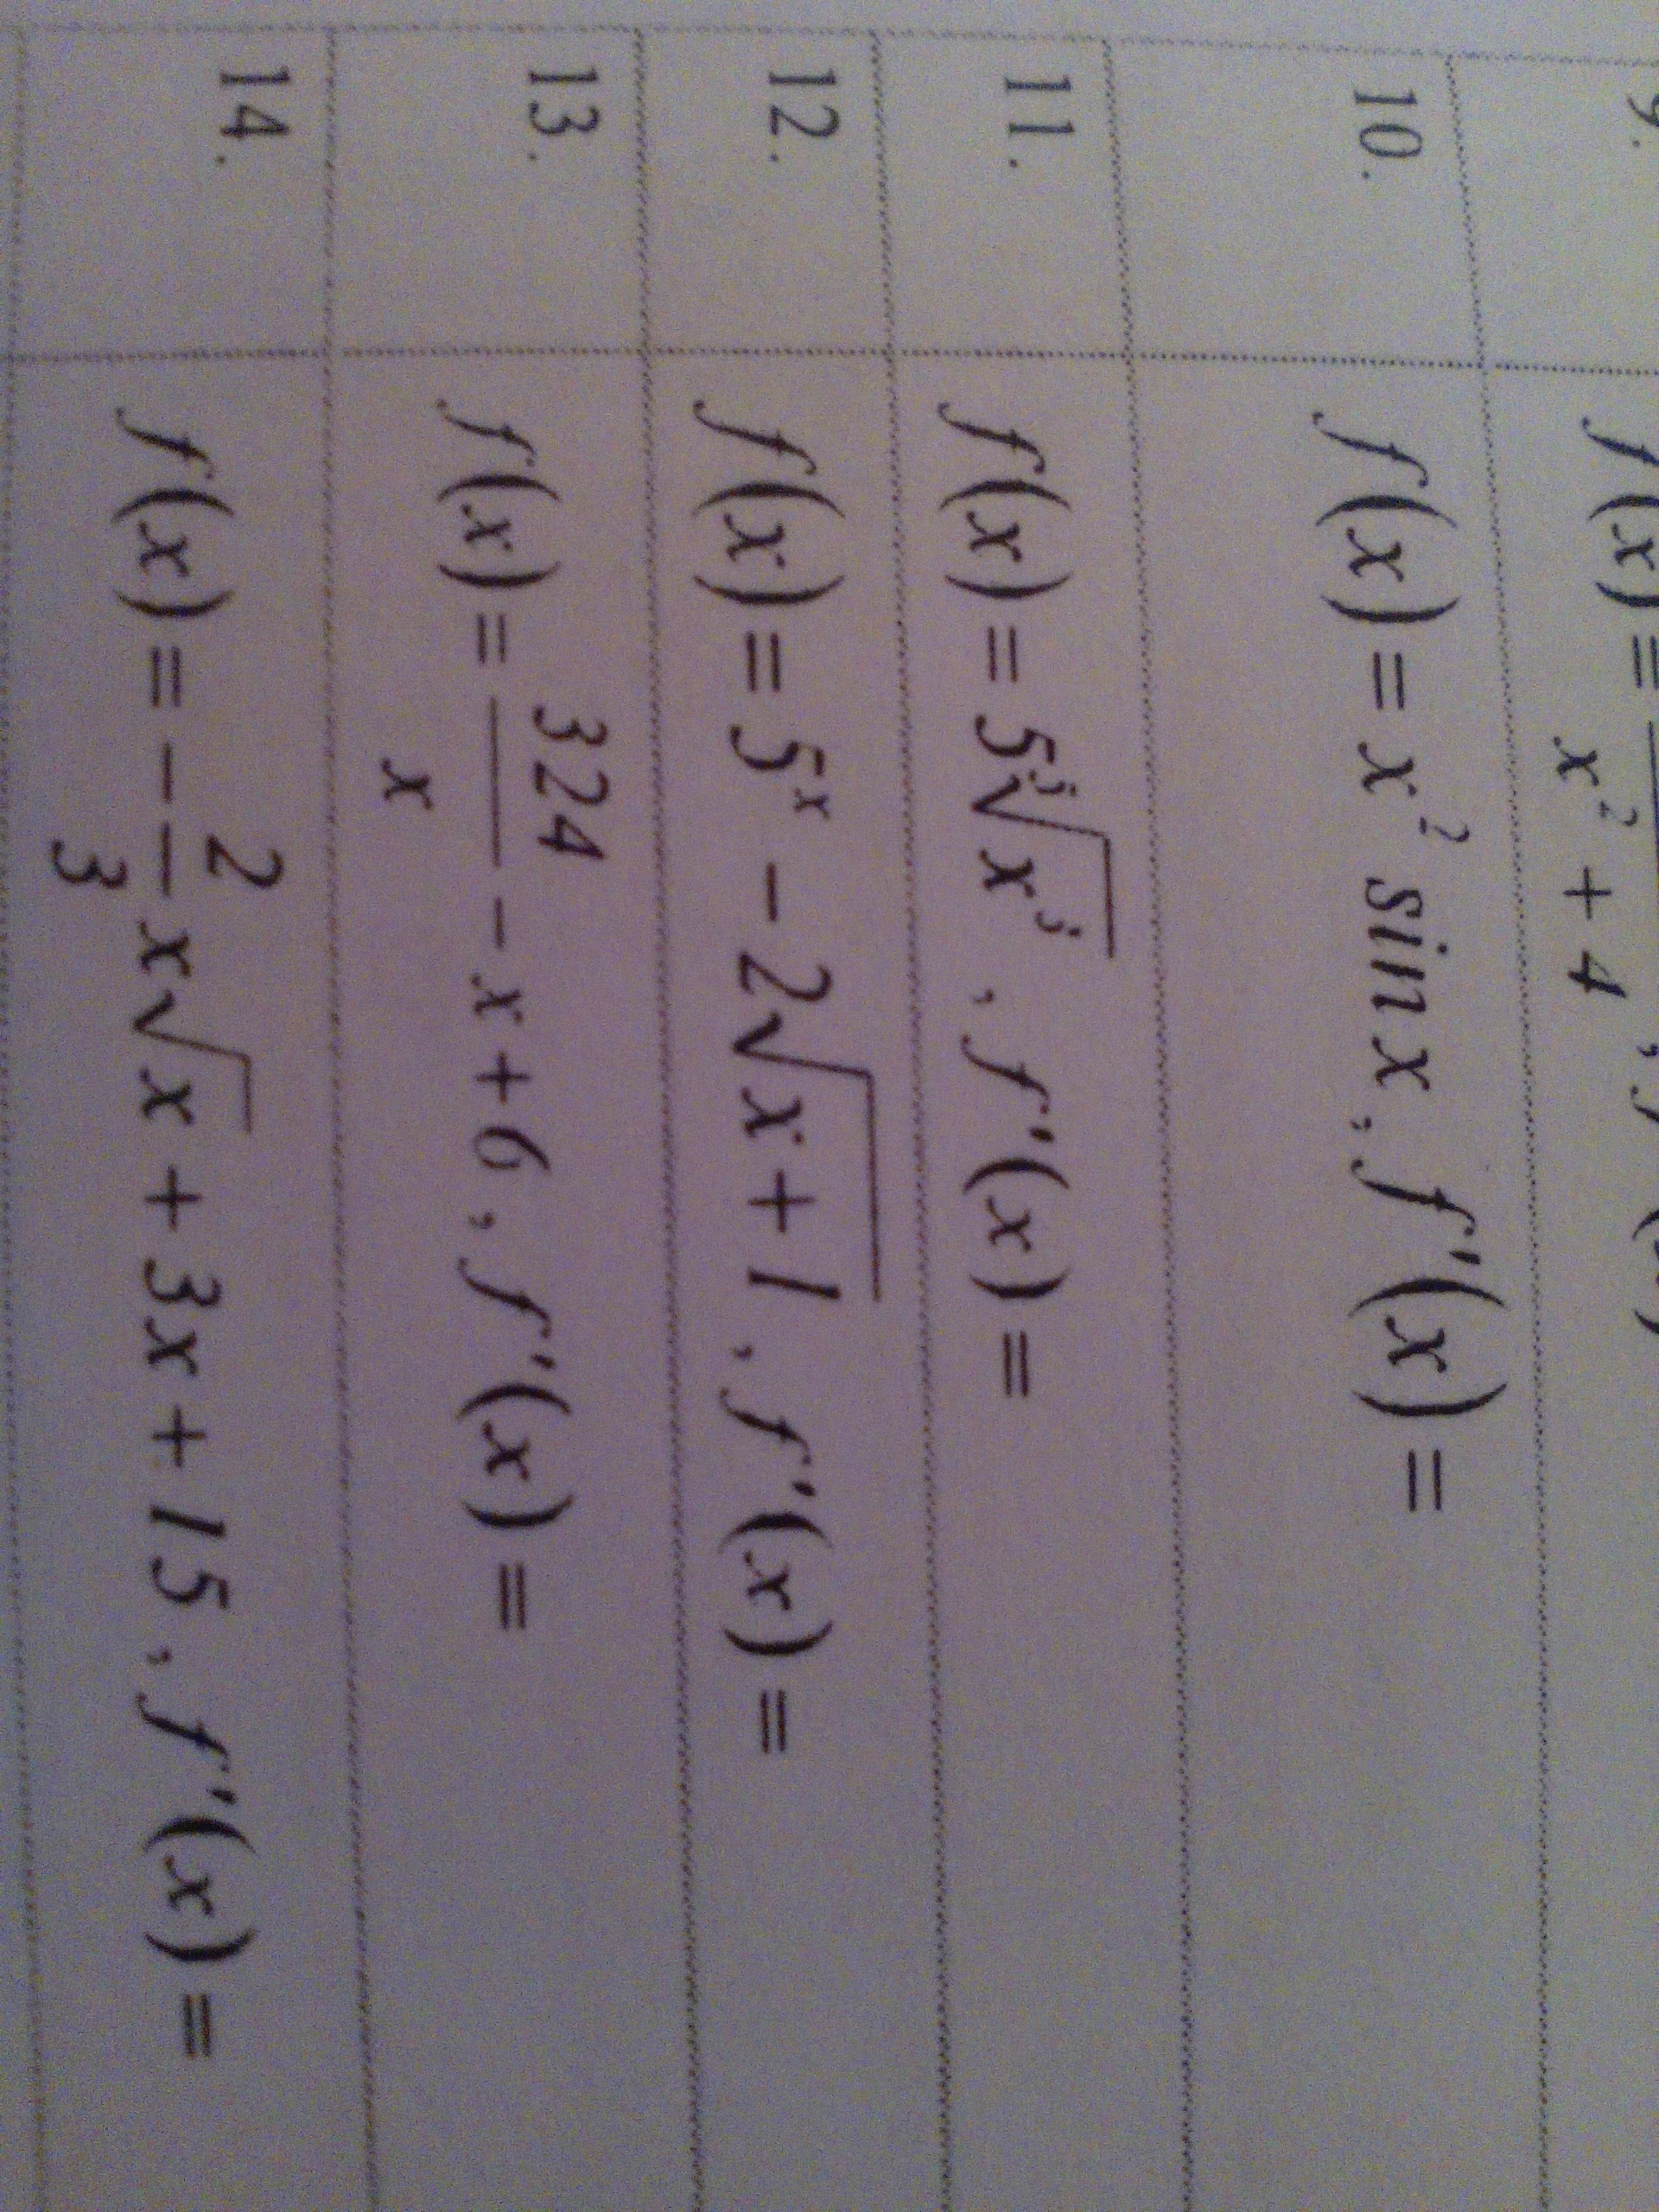 9. f(x) = x² + 4 ,
10. f(x) = x² sin x, f'(x) =
11. f(x) = 5 √x , f'(x) =
12. f(x) = 5ˣ − 2√(x + 1) , f'(x) =
13. f(x) = 324/x − x + 6 , f'(x) =
14. f(x) = − 2/3 x√x + 3x + 15 , f'(x) =